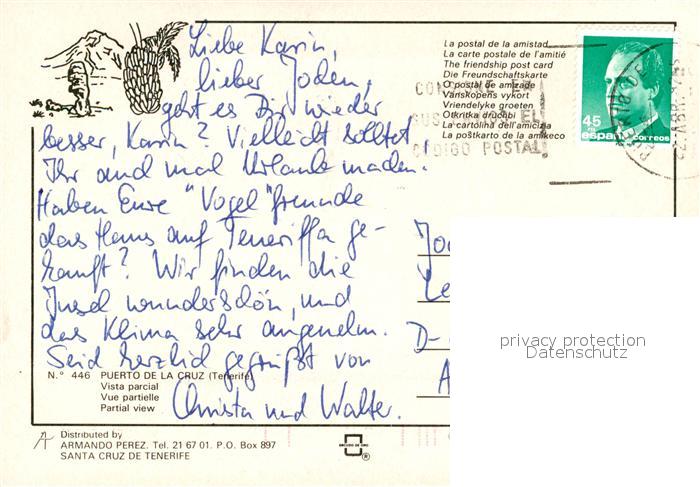 Liebe Karin,
lieber Joden,
geht es Dir wieder
besser, Karin? Vielleicht solltet
Ihr auch mal Urlaub machen.
Haben Eure "Vogel"freunde
das Haus auf Teneriffa ge-
kauft? Wir finden die
Insel wunderschön, und
das Klima sehr angenehm.
Seid herzlich gegrüßt von
Christa und Walter.
La postal de la amistad
La carte postale de l'amitié
The friendship post card
Die Freundschaftskarte
O postal de amizade
Vänskapens vykort
Vriendelyke groeten
Otkritka dručobi
La cartolina dell'amicizia
La poŝtkarto de la amikeco
CODIGO POSTAL
45
PTS
españa correos
D-
privacy protection
Datenschutz
N.° 446 PUERTO DE LA CRUZ (Tenerife)
Vista parcial
Vue partielle
Partial view
Distributed by
ARMANDO PEREZ. Tel. 21 67 01. P.O. Box 897
SANTA CRUZ DE TENERIFE
®